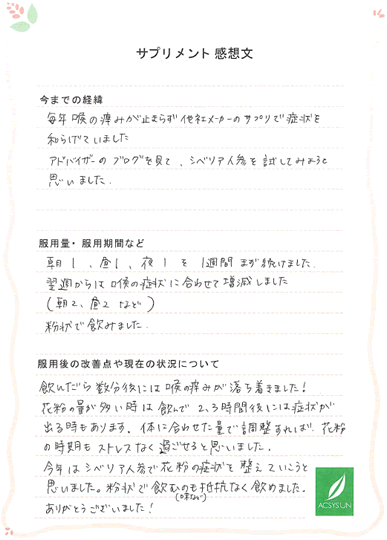 サプリメント 感想文
今までの経緯
毎年喉の痛みが止まらず他社メーカーのサプリで症状を
和らげていました
アドバイザーのブログを見て、シベリア人参を試してみようと
思いました.
服用量・服用期間など
朝1、昼1、夜1を1週間まず続けました.
翌週からは喉の症状に合わせて増減しました
(朝2、昼2 など)
粉状で飲みました.
服用後の改善点や現在の状況について
飲んだら数分後には喉の痛みが落ち着きました!
花粉の量が多い時は飲んで2、3時間後には症状が
出る時もあります. 体に合わせた量で調整すれば 花粉
の時期もストレスなく過ごせると思いました.
今年はシベリア人参で花粉の症状を整えていこうと
思いました。粉状で飲むのも抵抗なく飲めました.
(味ない)
ありがとうございました!
ACSYSUN